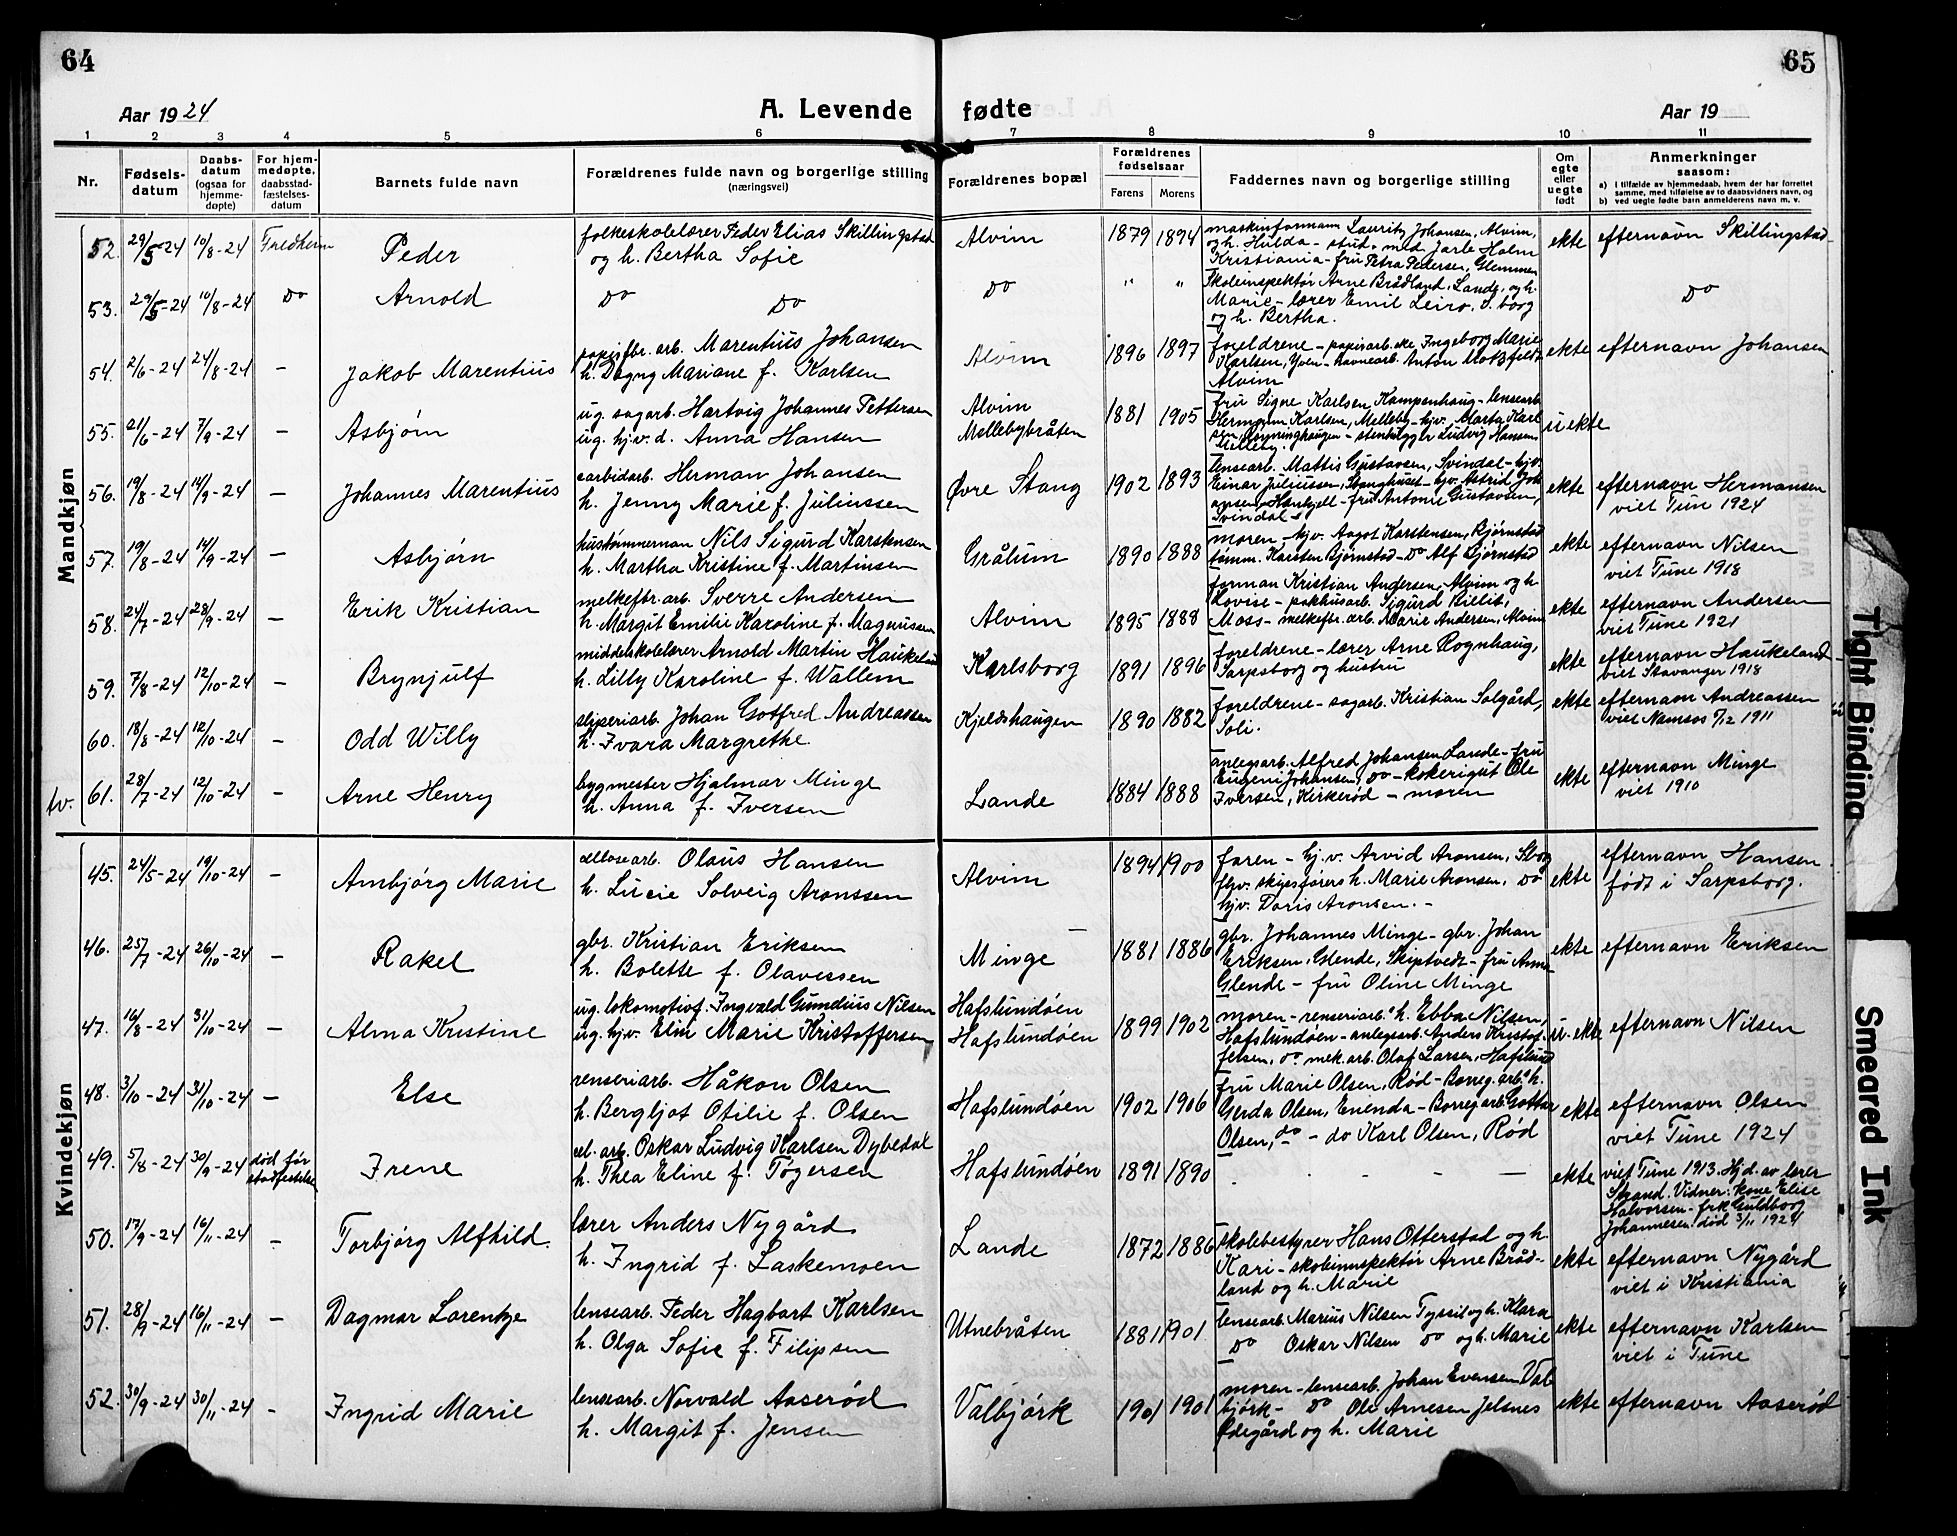 64
65
Aar 1924
A. Levende fødte
Aar 19
1 2 3 4 5 6 7 8 9 10 11
Nr.
Fødsels-
datum
Daabs-
datum
(ogsaa for
hjemme-
døpte)
For hjem-
medøpte,
daabsstad-
fæstelses-
datum
Barnets fulde navn
Forældrenes fulde navn og borgerlige stilling
(næringsvei)
Forældrenes bopæl
Forældrenes
fødselsaar
Farens Morens
Faddernes navn og borgerlige stilling
Om
egte
eller
uegte
født
Anmerkninger
saasom:
a) I tilfælde av hjemmedaab, hvem der har forrettet
samme, med tilføielse av to daabsvidners navn, og
b) ved uegte fødte barn anmelderens navn m. v.
Mandkjøn
52. 29/5-24 10/8-24 Fredheim Peder
folkeskolelærer Peder Elias Skillingstad
og h. Bertha Sofie
Alvim 1879 1894
maskinformann Lauritz Johansen, Alvim,
og h. Hulda - stud. med Jarle Holm
Kristiania - fru Petra Pedersen, Glemmen
ekte efternavn Skillingstad
53. 29/5-24 10/8-24 Do Arnold
Do Do
Do " "
Skoleinspektør Arne Brådland, Lande, og h.
Marie - lærer Emil Leiro, S.borg
og h. Bertha.
Do
54. 2/6-24 24/8-24 - Jakob Marentius
papirfbr. arb. Marentius Johansen
h. Dagny Mariane f. Karlsen
Alvim 1896 1897
foreldrene - papirarb. eke Ingeborg Marie
Karlsen, Yven - havnearb. Anton
Alvim
ekte efternavn Johansen
55. 21/6-24 7/9-24 - Asbjørn
ug. sagarb. Hartvig Johannes Pettersen
ug. hj.v. d. Anna Hansen
Alvim
Mellebybråten
1881 1905
fru Signe Karlsen Kampenhaug - lensearb.
Hermann Karlsen, Melleby - hjv. Marta Karl
sen, - stenhugger Ludvig Hansen
Melleby.
uekte
56. 19/8-24 14/9-24 - Johannes Marentius
carbidarb. Herman Johansen
h. Jenny Marie f. Juliussen
Øvre Stang 1902 1893
lensearb. Mattis Gustavsen, Svindal - hjv.
Einar Juliussen, Stanghuset - hjv. Astrid Joh
ansen, - fru Antonie Gustavsen,
Svindal
ekte efternavn Hermansen
viet Tune 1924
57. 19/8-24 14/9-24 - Asbjørn
hustømmerman Nils Sigurd Karstensen
h. Martha Kristine f. Martinsen
Grålum 1890 1888
moren - hjv. Aagot Karstensen, Bjørnstad
tømm. Karsten Bjørnstad - Do Alf Bjørnstad
ekte efternavn Nilsen
viet Tune 1918
58. 24/7-24 28/9-24 - Erik Kristian
melkefbr. arb. Sverre Andersen
h. Margit Emilie Karoline f. Magnussen
Alvim 1895 1888
forman Kristian Andersen, Alvim og h.
Lovise - pakhusarb. Sigurd
Moss - melkefbr. arb. Marie Andersen, Alvim
ekte efternavn Andersen
viet Tune 1921
59. 7/8-24 12/10-24 - Brynjulf
middelskolelærer Arnold Martin Haukeland
h. Lilly Karoline f. Wallem
Karlsborg 1891 1896
foreldrene - lærer Arne Rognhaug,
Sarpsborg og hustru
ekte efternavn Haukeland
viet Stavanger 1918
60. 18/8-24 12/10-24 - Odd Willy
sliperiarb. Johan Gotfred Andreassen
h. Ivara Margrethe
Kjeldshaugen 1890 1882
foreldrene - sagarb. Kristian Solgård,
Soli.
ekte efternavn Andreassen
viet Namsos 9/12 1911
tv. 61. 28/7-24 12/10-24 - Arne Henry
bygmester Hjalmar Minge
h. Anna f. Iversen
Lande 1884 1888
anlegsarb. Alfred Johansen Lande - fru
Eugeni Johansen, do - kokerigut Ole
Iversen, Kirkerød - moren
ekte efternavn Minge
viet 1910
Kvindekjøn
45. 24/5-24 19/10-24 - Ambjørg Marie
cellosearb. Olaus Hansen
h. Lucie Solveig Aronssen
Alvim 1894 1900
faren - hj.v. Arvid Aronsen, Sborg
flpv. skipsførers h. Marie Aronsen, Do
hjv. Doris Aronsen. -
ekte efternavn Hansen.
født i Sarpsborg.
46. 25/7-24 26/10-24 - Rakel
gbr. Kristian Eriksen
h. Bolette f. Olavessen
Minge 1881 1886
gbr. Johannes Minge - gbr. Johan
Eriksen, Glende, Skiptvedt - fru Anna
Glende - fru Oline Minge
ekte efternavn Eriksen
47. 16/8-24 31/10-24 - Alma Kristine
ug. lokomotivf. Ingvald Gundius Nilsen
ug. hj.v. Elin Marie Kristoffersen
Hafslundøen
Hafslundøen
1899 1902
moren - renseriarb.s h. Ebba Nilsen,
Hafslundøen - anlegsarb. Anders Kristof-
fersen, do mek. arb. Olaf Larsen, Hafslund
u-ekte efternavn Nilsen
48. 3/10-24 31/10-24 - Else
renseriarb. Håkon Olsen
h. Bergljot Otilie f. Olsen
Hafslundøen 1902 1906
fru Marie Olsen, Rød - Borreg. arb.s h.
Gerda Olsen, Enenda - Borreg arb. Gottar
Olsen, do - do Karl Olsen, Rød
ekte efternavn Olsen
viet Tune 1924
49. 5/8-24 30/9-24 død før
stadfestelse
Irene
cel. arb. Oskar Ludvig Karlsen Dybedal
h. Thea Eline f. Tøgersen
Hafslundøen 1891 1890 - - - -
ekte viet Tune 1913. Hj.d. av lærer
Strand. Vidner: kone Elise
Halvorsen - frk Guldborg
Johannesen død 3/11 1924
50. 17/9-24 16/11-24 - Torbjørg Alfhild.
lærer Anders Nygård
h. Ingrid f. Laskemoen
Lande 1872 1886
skolebestyrer Hans Otterstad og h.
Kari - skoleinnspektør Arne Bråd-
land og h. Marie
ekte efternavn Nygård
viet i Kristiania
51. 28/9-24 16/11-24 - Dagmar Lorentze
lensearb. Peder Hagbart Karlsen
h. Olga Sofie f. Filipsen
Utnebråten 1881 1901
lensearb. Marius Nilsen Tyssil og h. Klara
Do Oskar Nilsen Do og h. Marie
ekte efternavn Karlsen
viet i Tune
52. 30/9-24 30/11-24 - Ingrid Marie
lensearb. Norvald Aaserød
h. Margit f. Jensen
Valbjørk 1901 1901
moren - lensearb. Johan Evensen Val
bjørk - Do Ole Arnesen Jelsnes
Ødegård og h. Marie
ekte efternavn Aaserød
Tight Binding
Smeared Ink